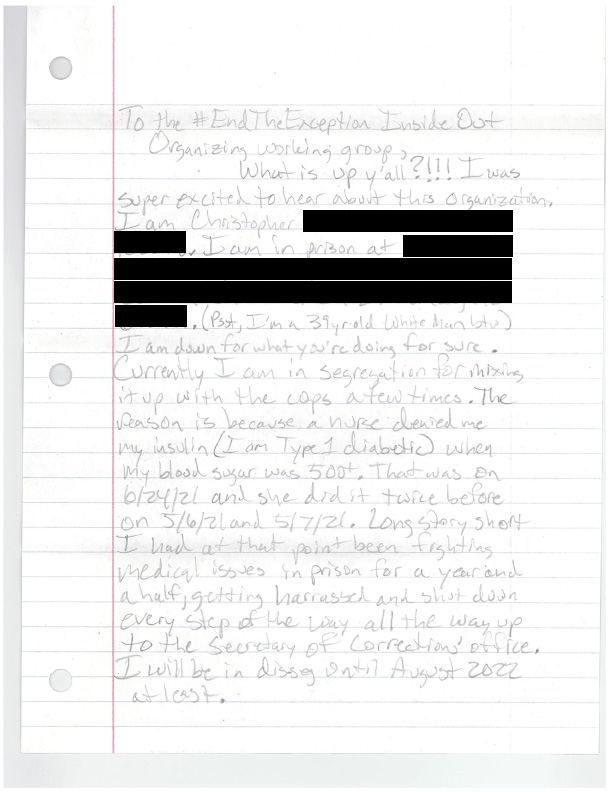 To the #EndTheException Inside Out
Organizing working group,
What is up y'all?!!! I was
super excited to hear about this organization.
I am Christopher
. I am in prison at
. (Psst, I'm a 39yr old White Man btw)
I am down for what you're doing for sure.
Currently I am in segregation for mixing
it up with the cops a few times. The
reason is because a nurse denied me
my insulin (I am Type 1 diabetic) when
my blood sugar was 500+. That was on
6/24/21 and she did it twice before
on 5/6/21 and 5/7/21. Long story short
I had at that point been fighting
medical issues in prison for a year and
a half, getting harrassed and shut down
every step of the way all the way up
to the Secretary of Corrections' office.
I will be in disseg until August 2022
at least.